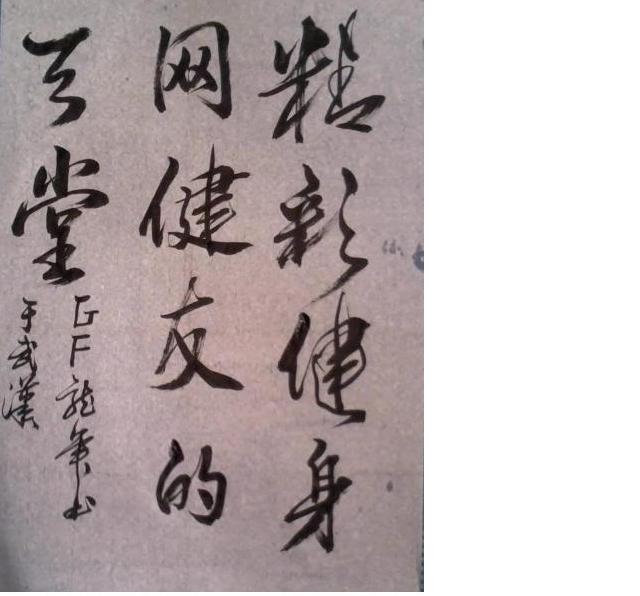 精彩健身
网健友的
天堂
GF龍年书
于武漢